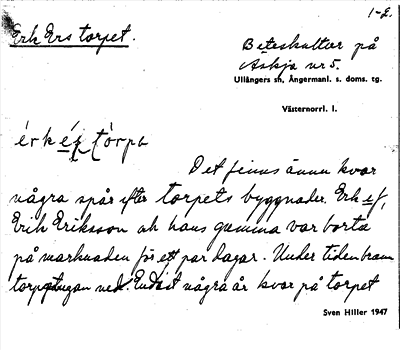 1-2.
Erk Ers torpet.
Beteskultur på
Askja nr 5.
Ullångers sn, Ångermanl. s. doms. tg.
Västernorrl. l.
Det finns ännu kvar
några spår efter torpets byggnader. Erk
Erik Eriksson ok hans gumma var borta
på marknaden för ett par dagar. Under tiden brann
torpstugan ned. Endast några år kvar på torpet
Sven Hiller 1947